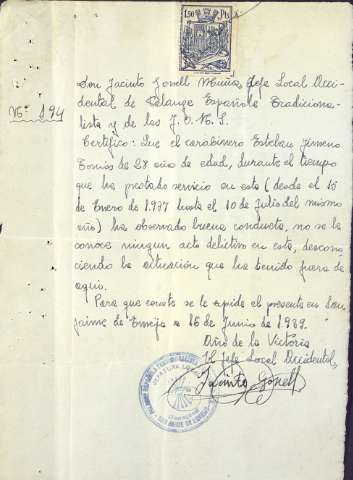 1,50 Pts
Don Jacinto Gonell Muña, Jefe Local Acci-
dental de Falange Española Tradiciona-
Nº 194
lista y de las J.O.N.S.
Certifico: Que el carabinero Esteban Jimeno
de 28 años de edad, durante el tiempo
que ha prestado servicio en esta (desde el 16
de Enero de 1937 hasta el 10 de Julio del mismo
año) ha observado buena conducta, no se le
conoce ningun acto delictivo en esta, descono-
ciendo la situación que ha tenido fuera de
aquí.
Para que conste se le expide el presente en San
Jaime de Enveija a 16 de Junio de 1939.
Año de la Victoria
El Jefe Local Accidental,
Jacinto Gonell